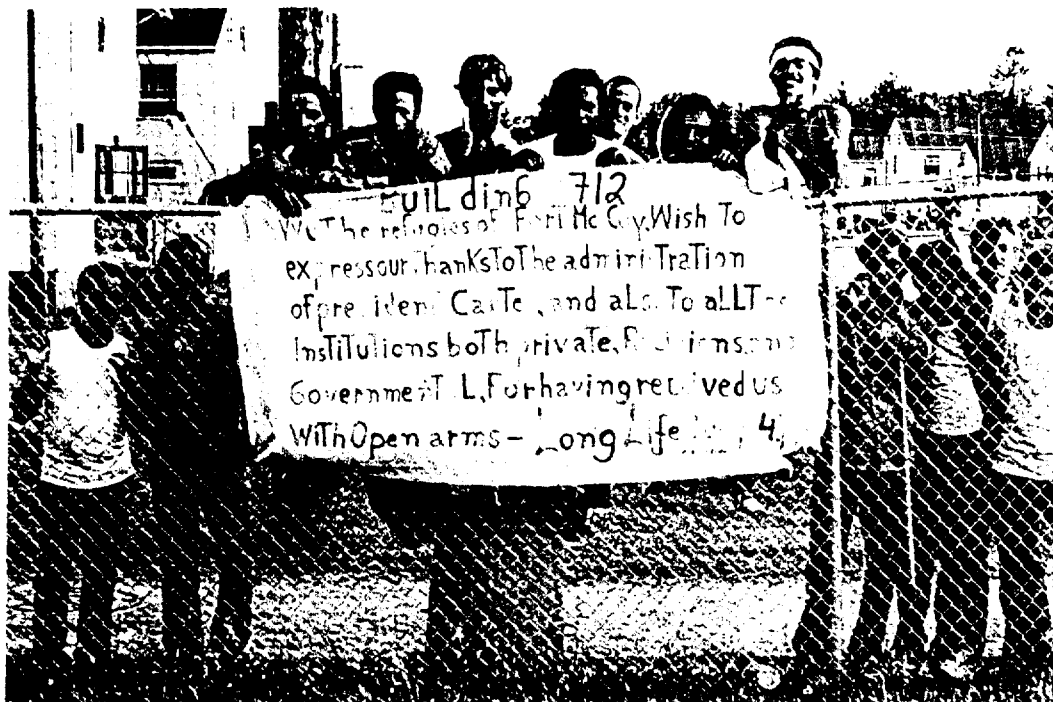 BuiLding 712
We The refugies of Fort Mc Coy, Wish To
express our ThanksToThe adminisTraTion
of president Carter, and also To aLL The
InsTiTuTions boTh private, and
GovernmenTAL, For having received us
WiTh Open arms - Long Life